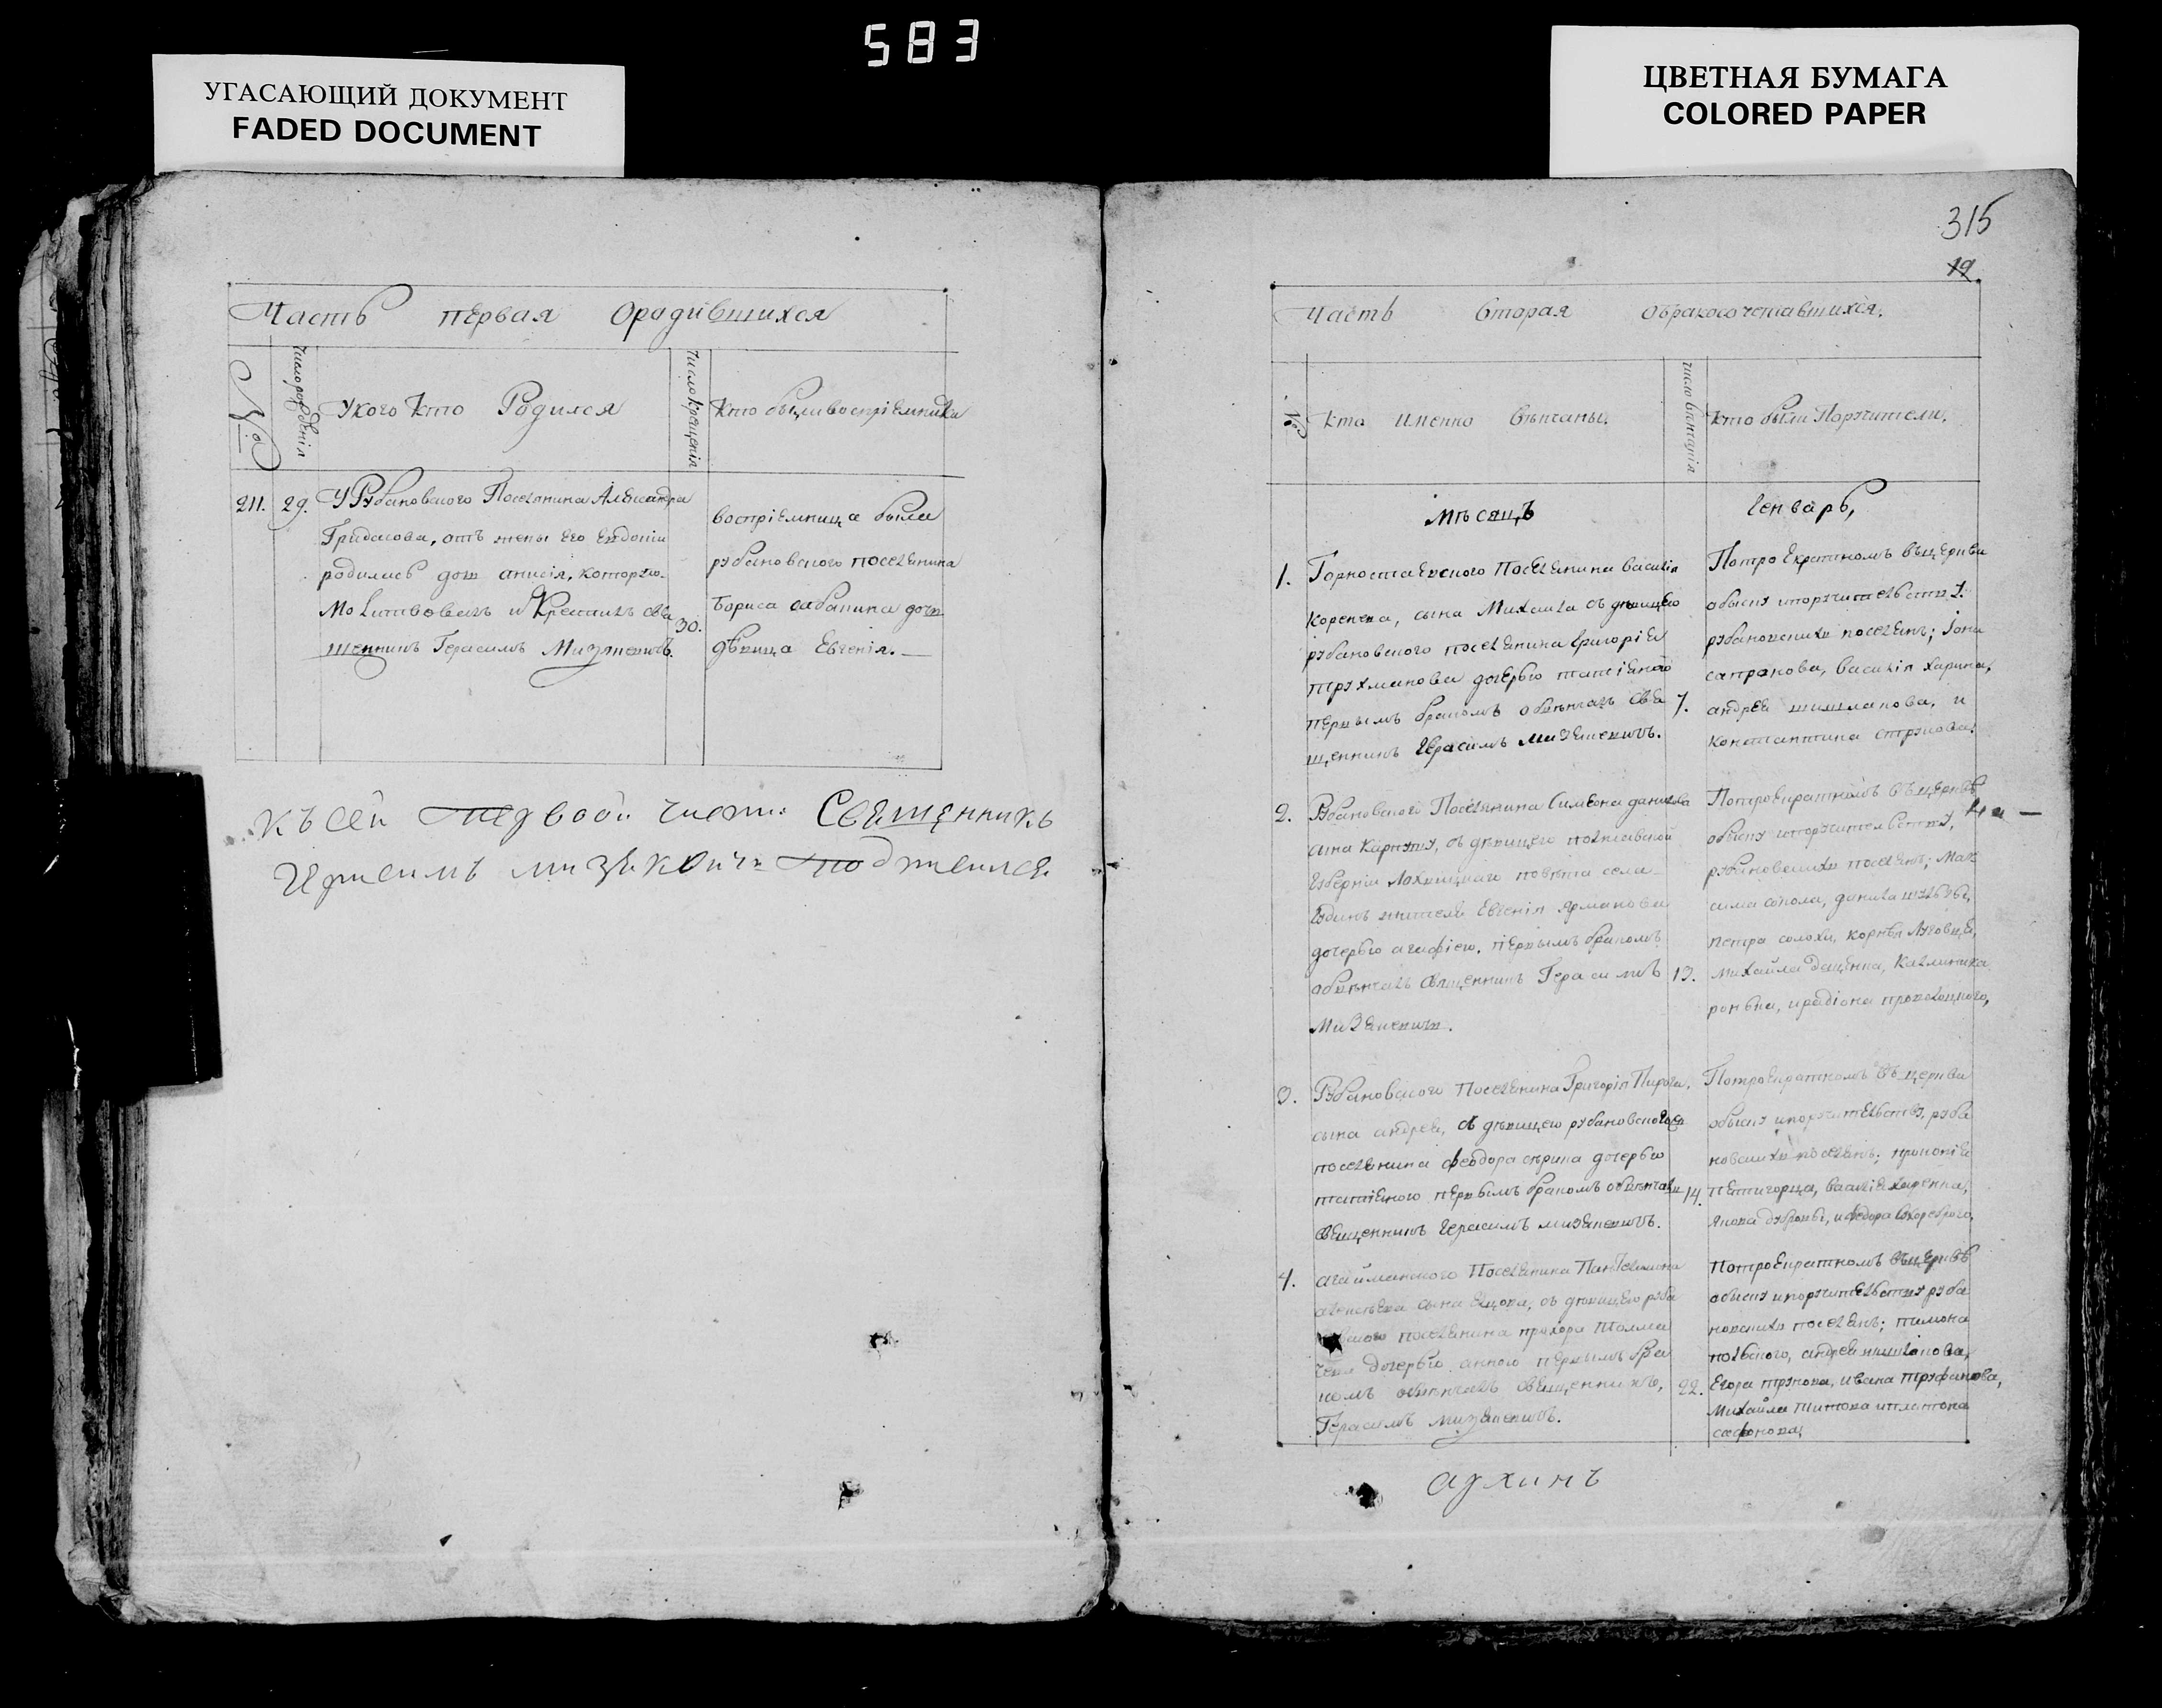 583
УГАСАЮЩИЙ ДОКУМЕНТ
FADED DOCUMENT
ЦВЕТНАЯ БУМАГА
COLORED PAPER
Часть первая ородившихся
№
число рождения
Укого кто Родился
число крещенія
кто были воспріемники
211. 29. У Рубановского Поселянина Александра
Гридасова, отъ жены его Евдокіи
родилась дочь анисія, которую
Молитвовалъ и Крестилъ свя
30.
щенникъ Герасимъ Мизякевичъ.
воспріемница была
рубановского поселянина
Бориса сабанина дочь
дѣвица Евгенія.
къ сей первой части Священникъ
Герасимъ подписался
315
19
Часть вторая обракосочетавшихся.
№
кто именно вѣнчаны.
число вѣнчанія
кто были Поручители.
Мѣсяцъ Генварь,
1. Горностаевского Поселянина василія
коренева, сына Михаила съ дѣвицею
рубановского поселянина григорія
трухманова дочерью татіаною
первымъ бракомъ обвѣнчалъ свя 7.
щенникъ Герасимъ Мизякевичъ.
Потроекратномъ въцеркви
обыску ипоручительству
рубановскихъ поселянъ; іона
сапронова, василія харина,
андрея шишланова, и
константина струкова.
2. Рубановского Поселянина Симеона данилова
сына съ дѣвицею полтавской
Губерніи Лохвицкаго повѣта села
жителя Евгенія ярманова
дочерью агафіею. первымъ бракомъ
обвѣнчалъ священникъ Герасимъ 13.
Мизякевичъ.
Потроекратномъ въцерквѣ
обыску ипоручительству,
рубановскихъ поселянъ; Мак
сима сокола, данила шульги,
петра солохи, корнѣя луговца,
михайла деценка, калиника
и радіона
3. Рубановского Поселянина Григорія Пирога,
сына андрея, съ дѣвицею рубановского
поселянина феодора сѣрика дочерью
татіаною первымъ бракомъ обвѣнчалъ 14.
священникъ герасимъ мизякевичъ.
Потроекратномъ въ церкви
обыску ипоручительству, руба
новскихъ поселянъ; прокопія
пятигорца, василія
якова дубровы, и федора
4. агайманского Поселянина Пантелимона
алексѣева сына съ дѣвицею руба
новского поселянина прохора толма
чева дочерью анною первымъ бра
комъ обвѣнчалъ священникъ, 22.
Герасимъ мизякевичъ.
Потроекратномъ въцерквѣ
обыску ипоручительству руба
новскихъ поселянъ; пимона
польского, андрея шишланова,
Егора трунова, ивана труфанова,
Михайла титова иплатона
сафонова,